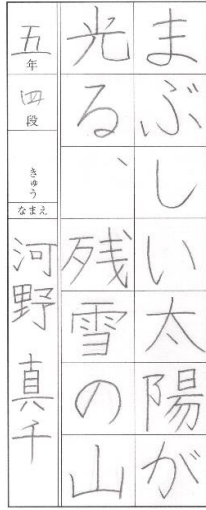 まぶしい太陽が
光る、残雪の山
五年
四段
きゅう
なまえ
河野真千